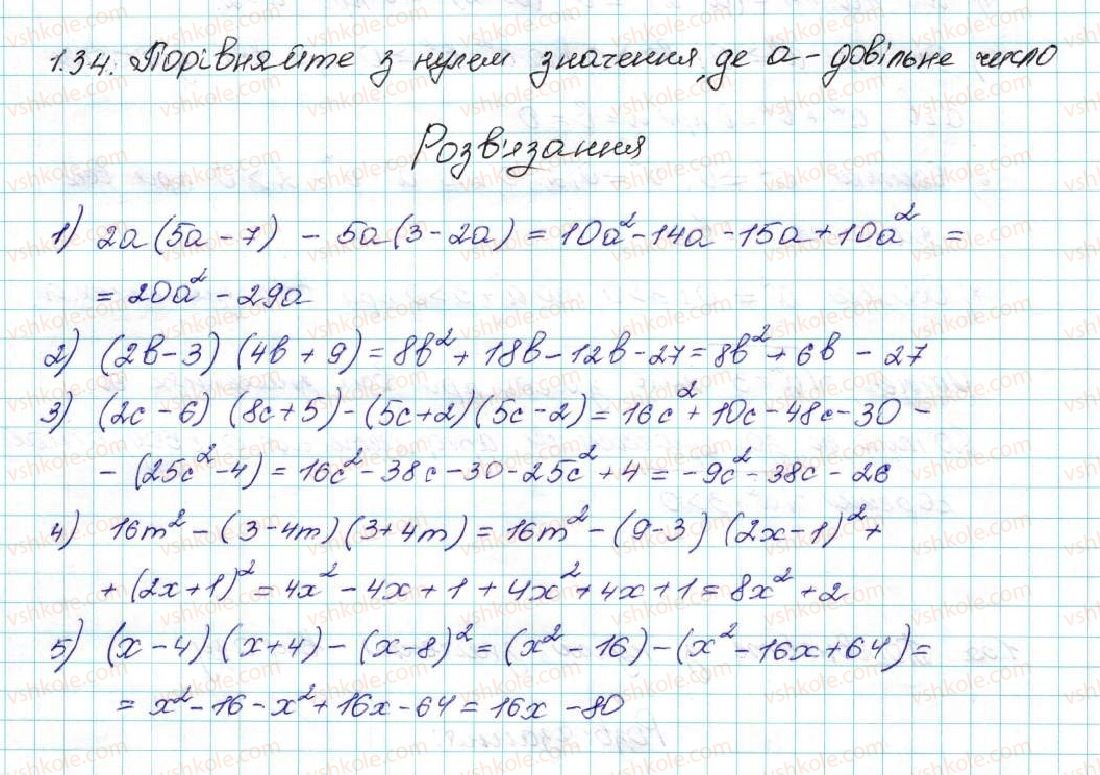 1.34. Порівняйте з нулем значення, де а - довільне число
Розв'язання
1) 2a(5a-7) - 5a(3-2a) = 10a²-14a-15a+10a² =
= 20a² - 29a
2) (2b-3)(4b+9) = 8b²+18b-12b-27 = 8b²+6b-27
3) (2c-6)(8c+5)-(5c+2)(5c-2) = 16c²+10c-48c-30-
- (25c²-4) = 16c²-38c-30-25c²+4 = -9c²-38c-26
4) 16m²-(3-4m)(3+4m) = 16m²-(9-3)(2x-1)²+
+ (2x+1)² = 4x²-4x+1+4x²+4x+1 = 8x²+2
5) (x-4)(x+4)-(x-8)² = (x²-16)-(x²-16x+64) =
= x²-16-x²+16x-64 = 16x-80
vshkole.com